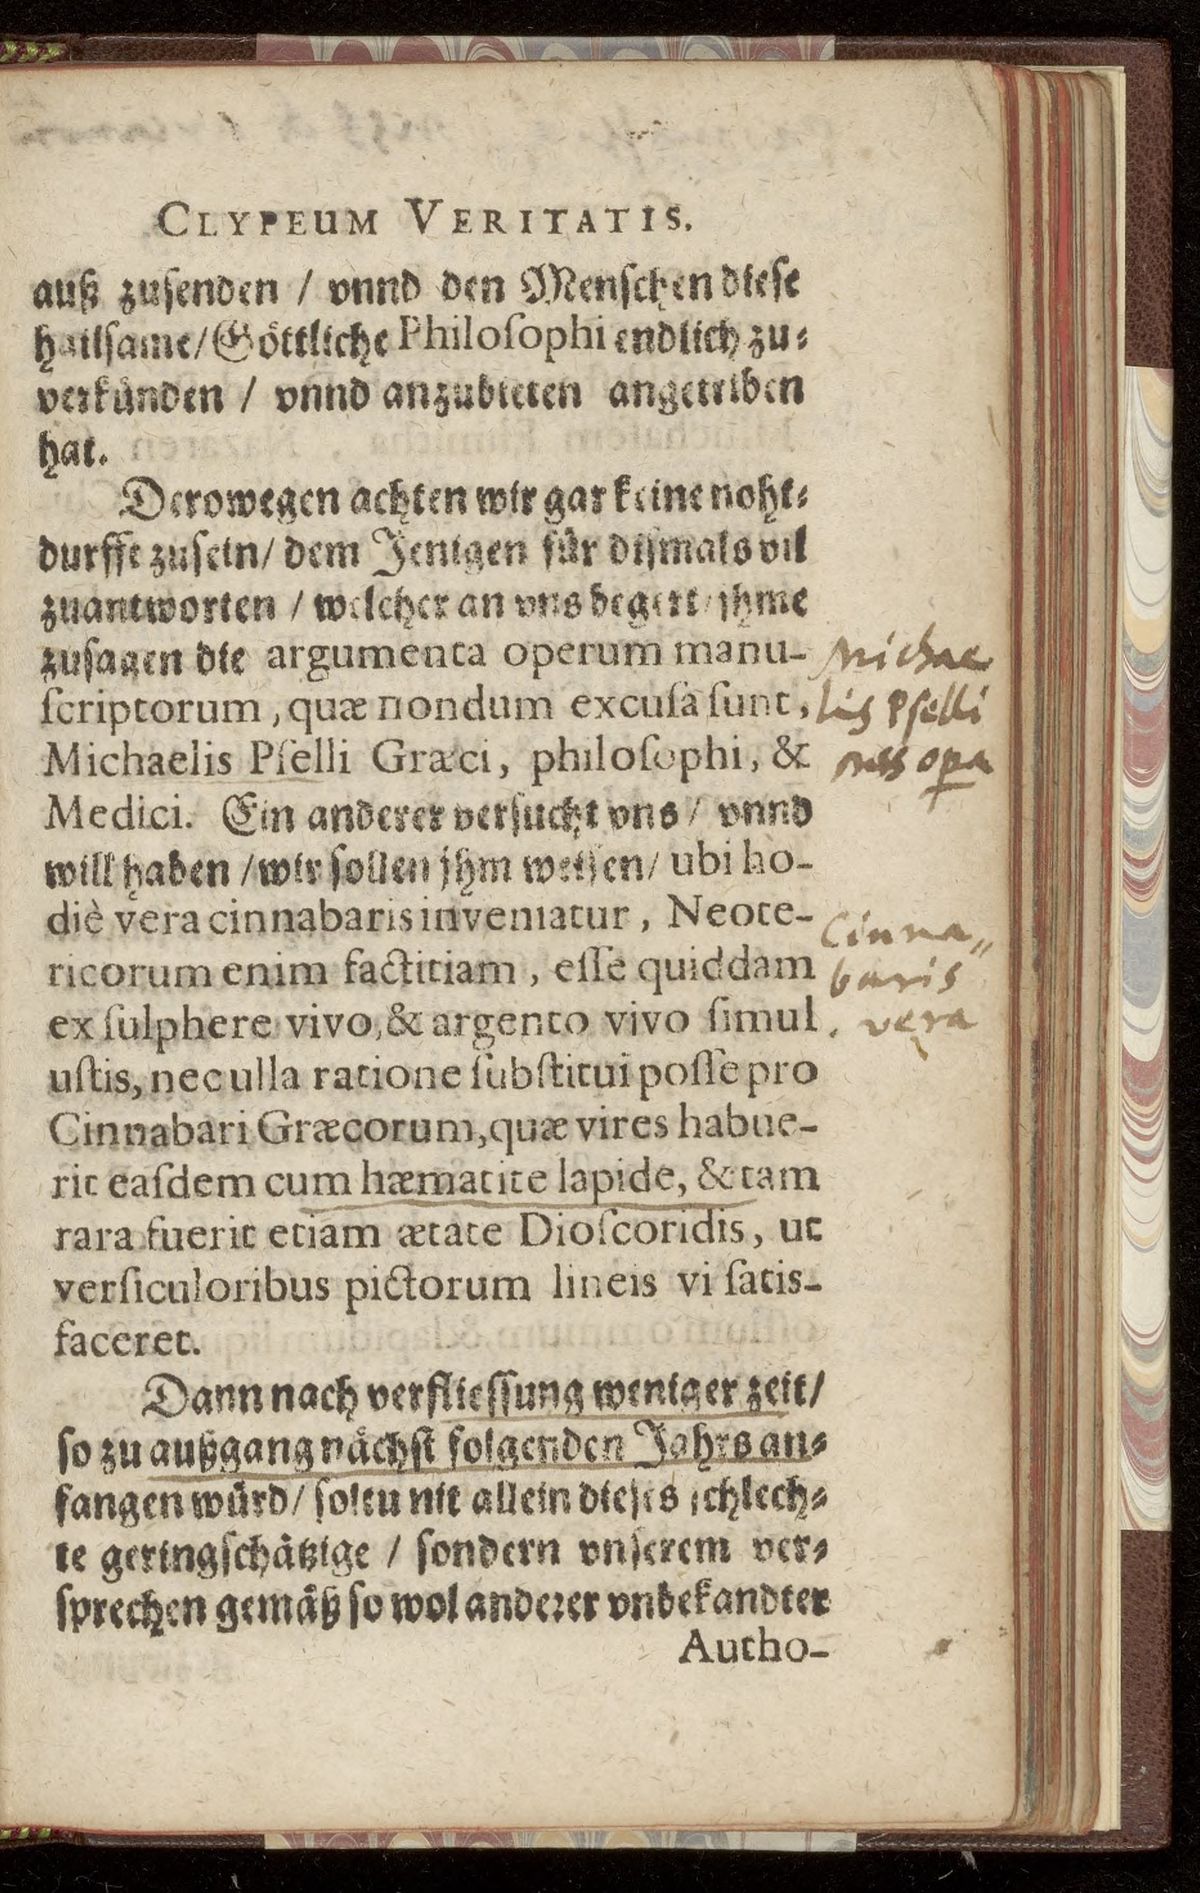 CLYPEUM VERITATIS.
auß zusenden / vnnd den Menschen diese
hailsame/Göttliche Philoſophi endlich zu⸗
verkünden / vnnd anzubieten angetriben
hat.
Derowegen achten wir gar keine noht⸗
durfft zusein/ dem Jenigen für dißmals vil
zuantworten / welcher an vns begert/ jhme
zusagen die argumenta operum manu-
ſcriptorum, quæ nondum excuſa ſunt,
Michaelis Pſelli Græci, philoſophi, &
Medici. Ein anderer versucht vns / vnnd
will haben /wir sollen jhm weisen/ ubi ho-
diè vera cinnabaris inveniatur, Neote-
ricorum enim factitiam, eſſe quiddam
ex ſulphere vivo,& argento vivo ſimul
uſtis, nec ulla ratione ſubſtitui poſſe pro
Cinnabari Græcorum,quæ vires habue-
rit eaſdem cum hæmatite lapide, & tam
rara fuerit etiam ætate Dioſcoridis, ut
verſiculoribus pictorum lineis vi ſatis-
faceret.
Dann nach verfliessung weniger zeit/
so zu außgang nächst folgenden Jahrs an⸗
fangen würd/ soltu nit allein dieses schlech⸗
te geringschätzige / sondern vnserem ver⸗
sprechen gemäß so wol anderer vnbekandter
Autho-
Michae
lis Pſelli
mss opa
Cinna〃
baris
vera